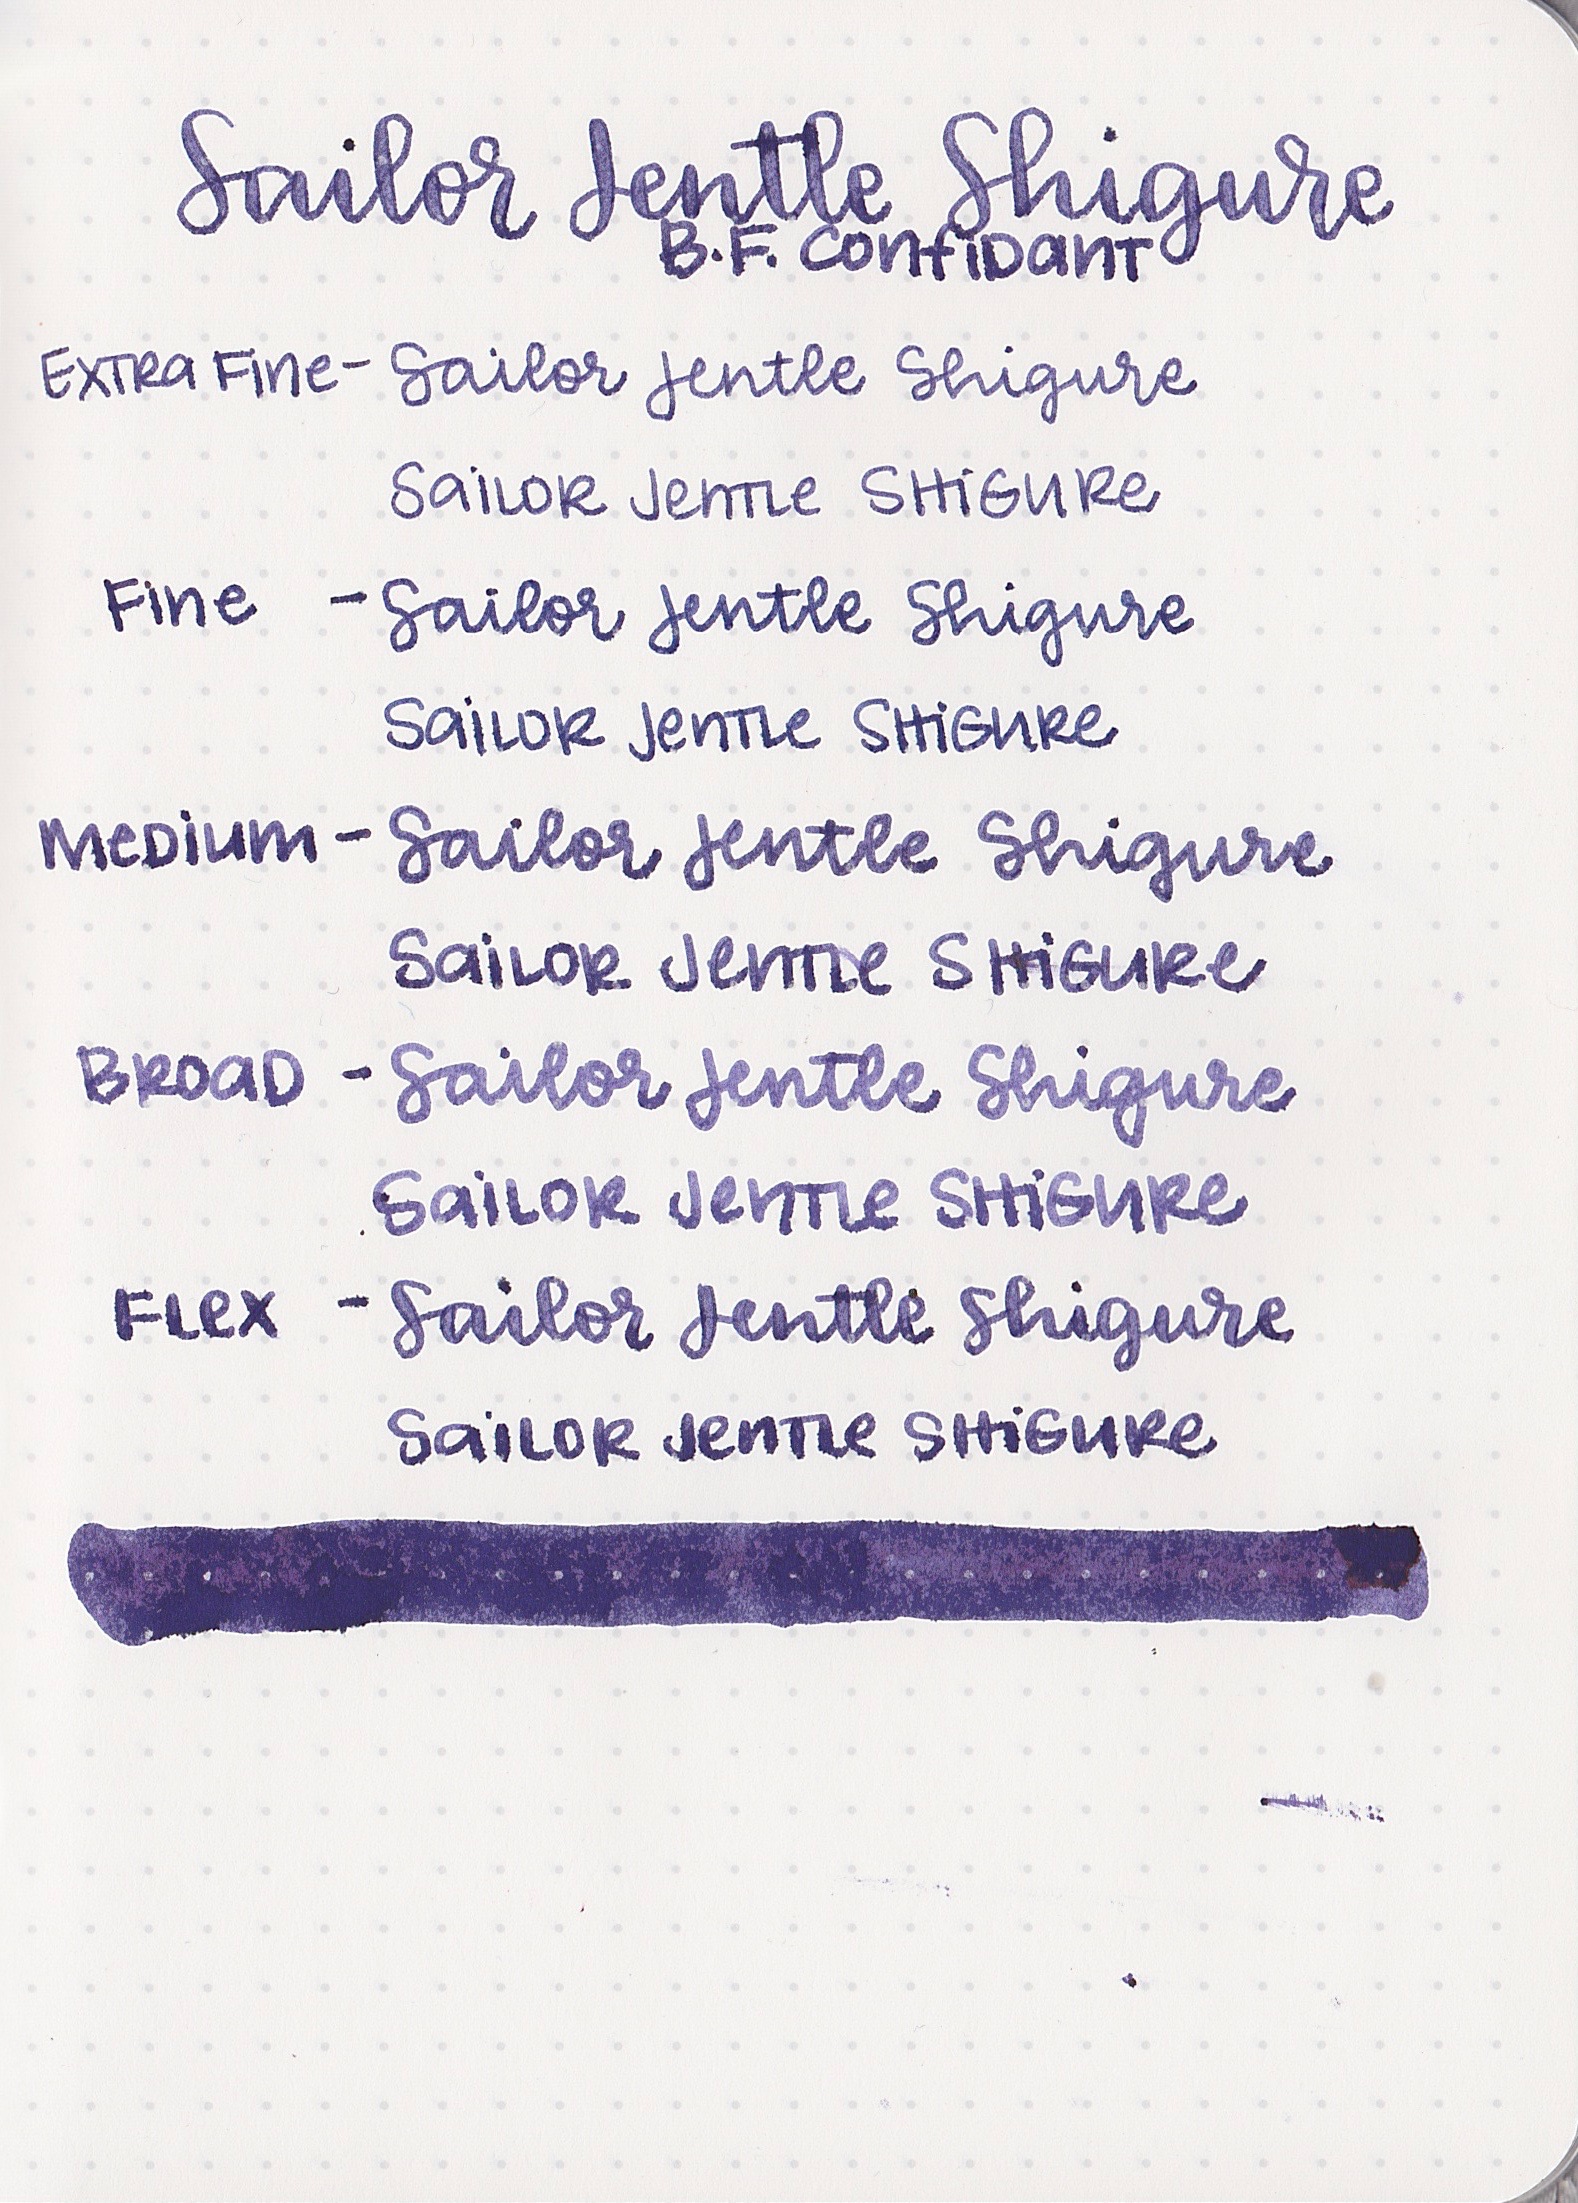 Sailor Jentle Shigure
B.F. Confidant
Extra Fine - Sailor Jentle Shigure
Sailor Jentle Shigure
Fine - Sailor Jentle Shigure
Sailor Jentle Shigure
Medium - Sailor Jentle Shigure
Sailor Jentle Shigure
Broad - Sailor Jentle Shigure
Sailor Jentle Shigure
Flex - Sailor Jentle Shigure
Sailor Jentle Shigure